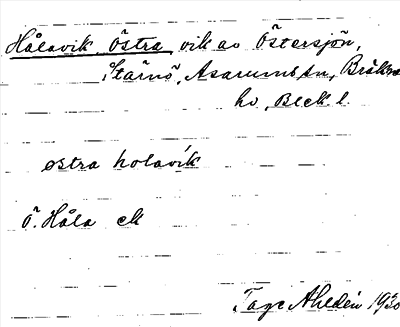 Hålavik, Östra, vik av Östersjön,
Stärnö, Asarums sn, Bräkne
hd, Blek. l.
østra holavik
Ö. Håla ek
Tage Ahldén 1930